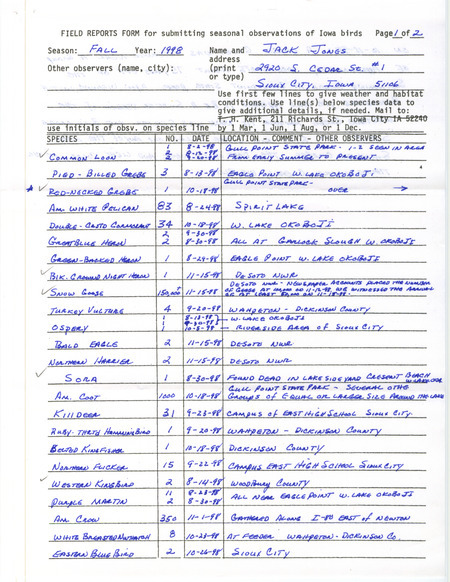 FIELD REPORTS FORM for submitting seasonal observations of Iowa birds Page 1 of 2
Season: FALL Year: 1998 Name and JACK JONES
address
Other observers (name, city): (print 2920 S. CEDAR ST. #1
or type)
SIOUX CITY, IOWA 51106
Use first few lines to give weather and habitat
conditions. Use line(s) below species data to
give additional details, if needed. Mail to:
T. H. Kent, 211 Richards St., Iowa City IA 52240
use initials of obsv. on species line by 1 Mar, 1 Jun, 1 Aug, or 1 Dec.
SPECIES NO. DATE LOCATION - COMMENT - OTHER OBSERVERS
8-2-98 GULL POINT STATE PARK - 1-2 SEEN IN AREA
COMMON LOON 2 9-20-98 FROM EARLY SUMMER TO PRESENT
PIED-BILLED GREBE 3 8-13-98 EAGLE POINT W. LAKE OKOBOJI
GULL POINT STATE PARK -
RED-NECKED GREBE 1 10-18-98 OVER →
AM. WHITE PELICAN 83 8-24-98 SPIRIT LAKE
DOUBLE-CRSTD CORMORANT 34 10-18-98 W. LAKE OKOBOJI
2 9-30-98
GREAT BLUE HERON 2 8-30-98 ALL AT GARLOCK SLOUGH W. OKOBOJI
GREEN-BACKED HERON 1 8-29-98 EAGLE POINT W. LAKE OKOBOJI
BLK. CROWND NIGHT HERON 1 11-15-98 DESOTO NWR
DESOTO NWR - NEWSPAPER ACCOUNTS PLACED THE NUMBER
OF GEESE AT 11-12-98. WE WITNESSED THE
SNOW GOOSE 150,000 11-15-98 AT LEAST 11-15-98
TURKEY VULTURE 4 9-20-98 WAHPETON - DICKINSON COUNTY
1 8-13-98 W. LAKE OKOBOJI
OSPREY 1 10-5-98 RIVERSIDE AREA OF SIOUX CITY
BALD EAGLE 2 11-15-98 DESOTO NWR
NORTHERN HARRIER 2 11-15-98 DESOTO NWR
SORA 1 8-30-98 FOUND DEAD IN LAKESIDE YARD CRESENT BEACH
W. LAKE OKO
GULL POINT STATE PARK - SEVERAL OTHE
AM. COOT 1000 10-18-98 GROUPS OF EQUAL OR LARGER SIZE AROUND THE LAKE
KILLDEER 31 9-23-98 CAMPUS OF EAST HIGH SCHOOL SIOUX CITY.
RUBY-THRTD HUMMINGBIRD 1 9-20-98 WAHPETON - DICKINSON COUNTY
BELTED KINGFISHER 1 10-18-98 DICKINSON COUNTY
NORTHERN FLICKER 15 9-22-98 CAMPUS EAST HIGH SCHOOL SIOUX CITY
WESTERN KINGBIRD 2 8-14-98 WOODBURY COUNTY
11 8-23-98
PURPLE MARTIN 2 8-30-98 ALL NEAR EAGLE POINT W. LAKE OKOBOJI
AM. CROW 350 11-1-98 GATHERED ALONG I-80 EAST OF NEWTON
WHITE BREASTED NUTHATCH 8 10-23-98 AT FEEDER WAHPETON - DICKINSON CO.
EASTERN BLUE BIRD 2 10-26-98 SIOUX CITY